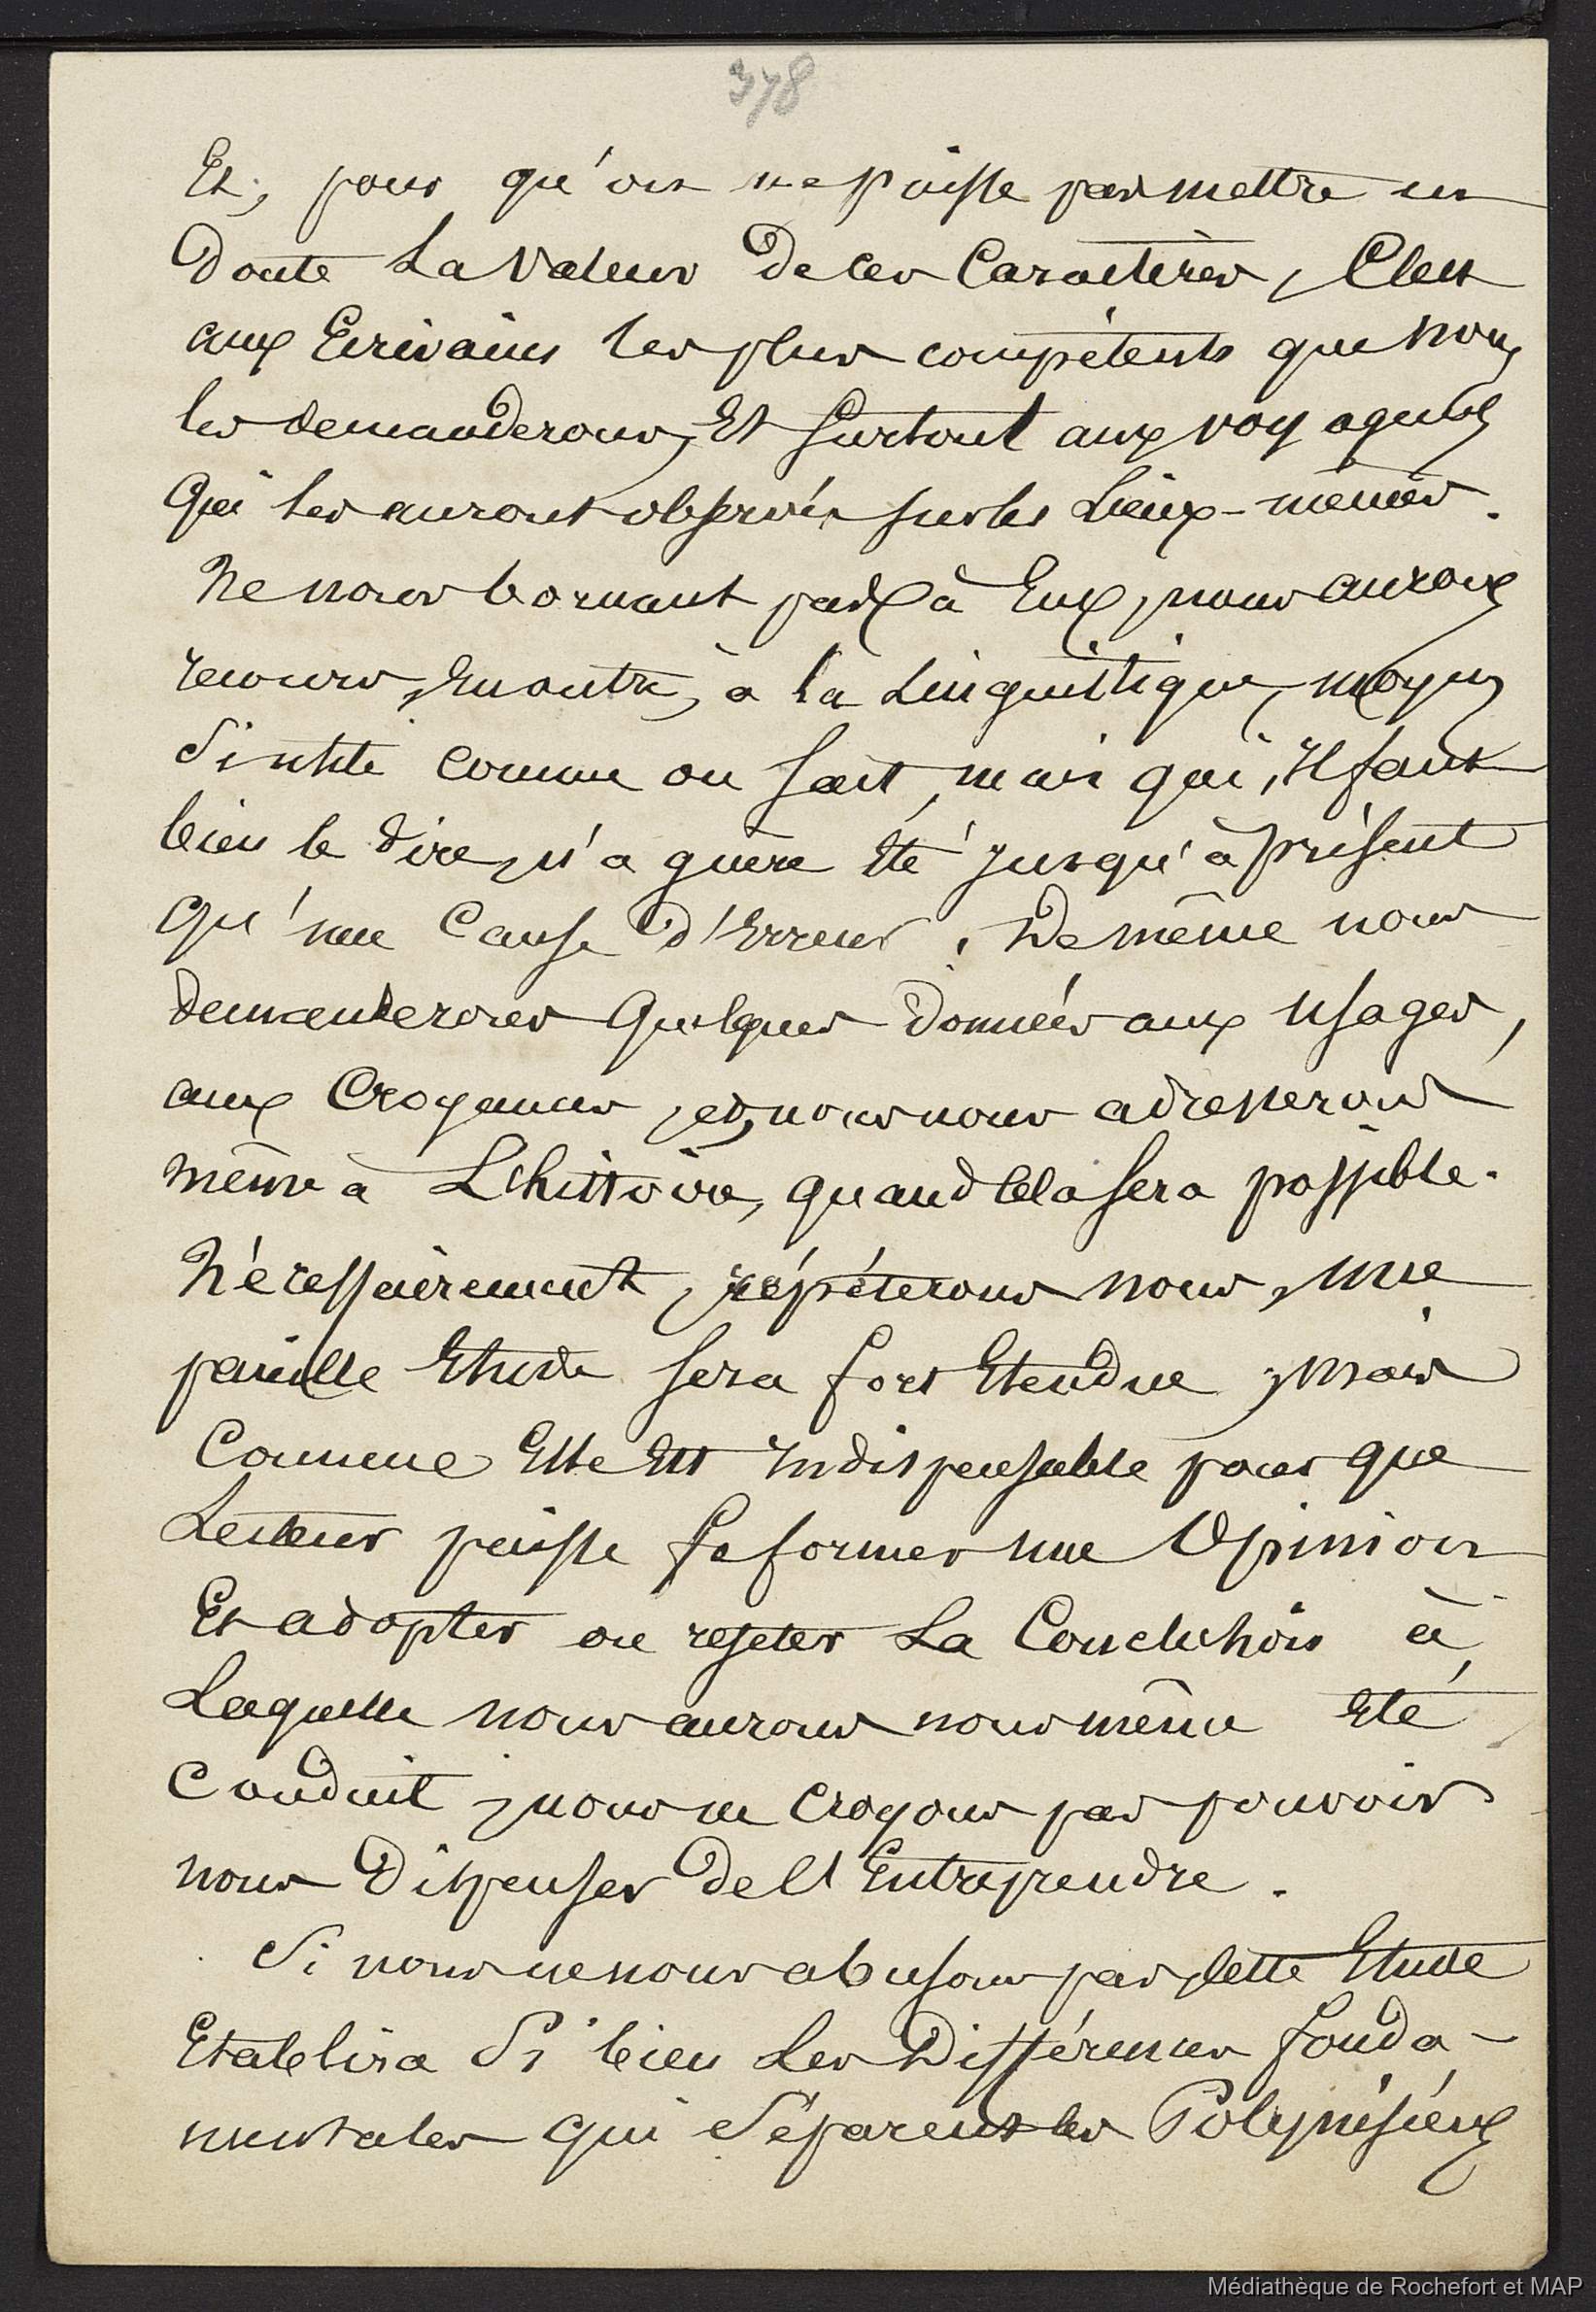 378
Et, pour qu'on ne puisse pas mettre en
Doute La Valeur De ces Caractères, C'est
aux Ecrivains les plus compétents que nous
les demanderons, Et surtout aux voyageurs
Qui les auront observés sur les Lieux-mêmes.
Ne nous bornant pas à Eux, nous aurons
recours, En outre, à la Linguistique, moyen
Si utile comme on sait, mais qui, Il faut
bien le dire, n'a guère Eté jusqu'à présent
qu'une Cause d'Erreur. De même nous
demanderons Quelques Données aux Usages,
aux Croyances, et, nous nous adresserons
même à L'histoire, quand Cela sera possible.
Nécessairement, répéterons nous, une
pareille Etude sera fort Etendue ; mais
Comme Elle Est Indispensable pour que
Lecteur puisse se former une Opinion
Et adopter ou rejeter La Conclusion à
Laquelle nous aurons nous même Eté
Conduit, nous ne Croyons pas pouvoir
nous Dispenser De l'Entreprendre.
Si nous ne nous abusons pas, Cette Etude
Etablira Si bien Les Différences fonda-
mentales qui Séparent les Polynésiens
Médiathèque de Rochefort et MAP